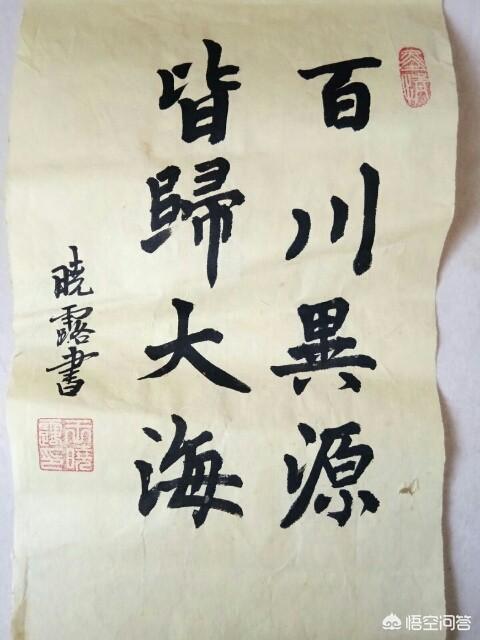 百川異源
皆歸大海
曉露書
悟空问答